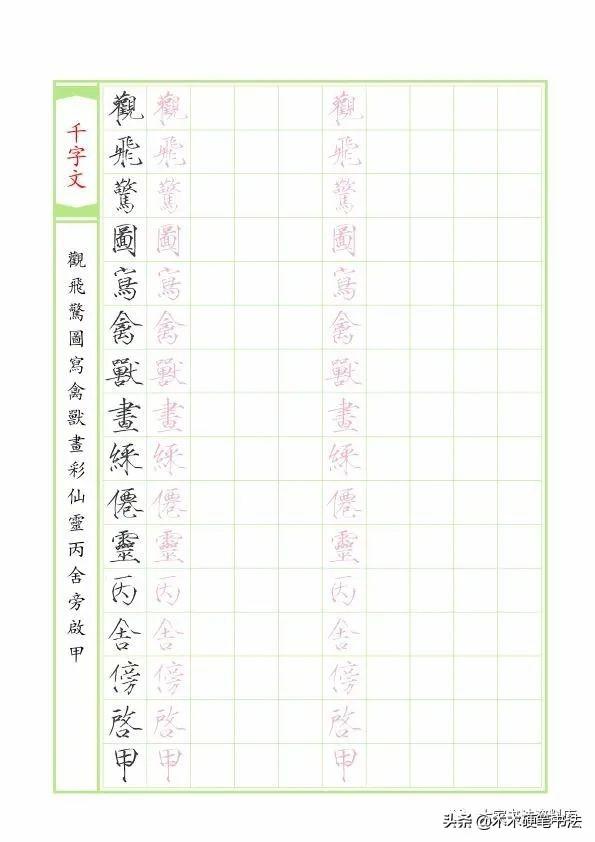 千字文
觀飛驚圖寫禽獸畫彩仙靈丙舍旁啟甲
觀飛驚圖寫禽獸畫綵僊靈丙舍傍啓甲
觀飛驚圖寫禽獸畫綵僊靈丙舍傍啓甲
觀飛驚圖寫禽獸畫綵僊靈丙舍傍啓甲
头条 @木木硬笔书法